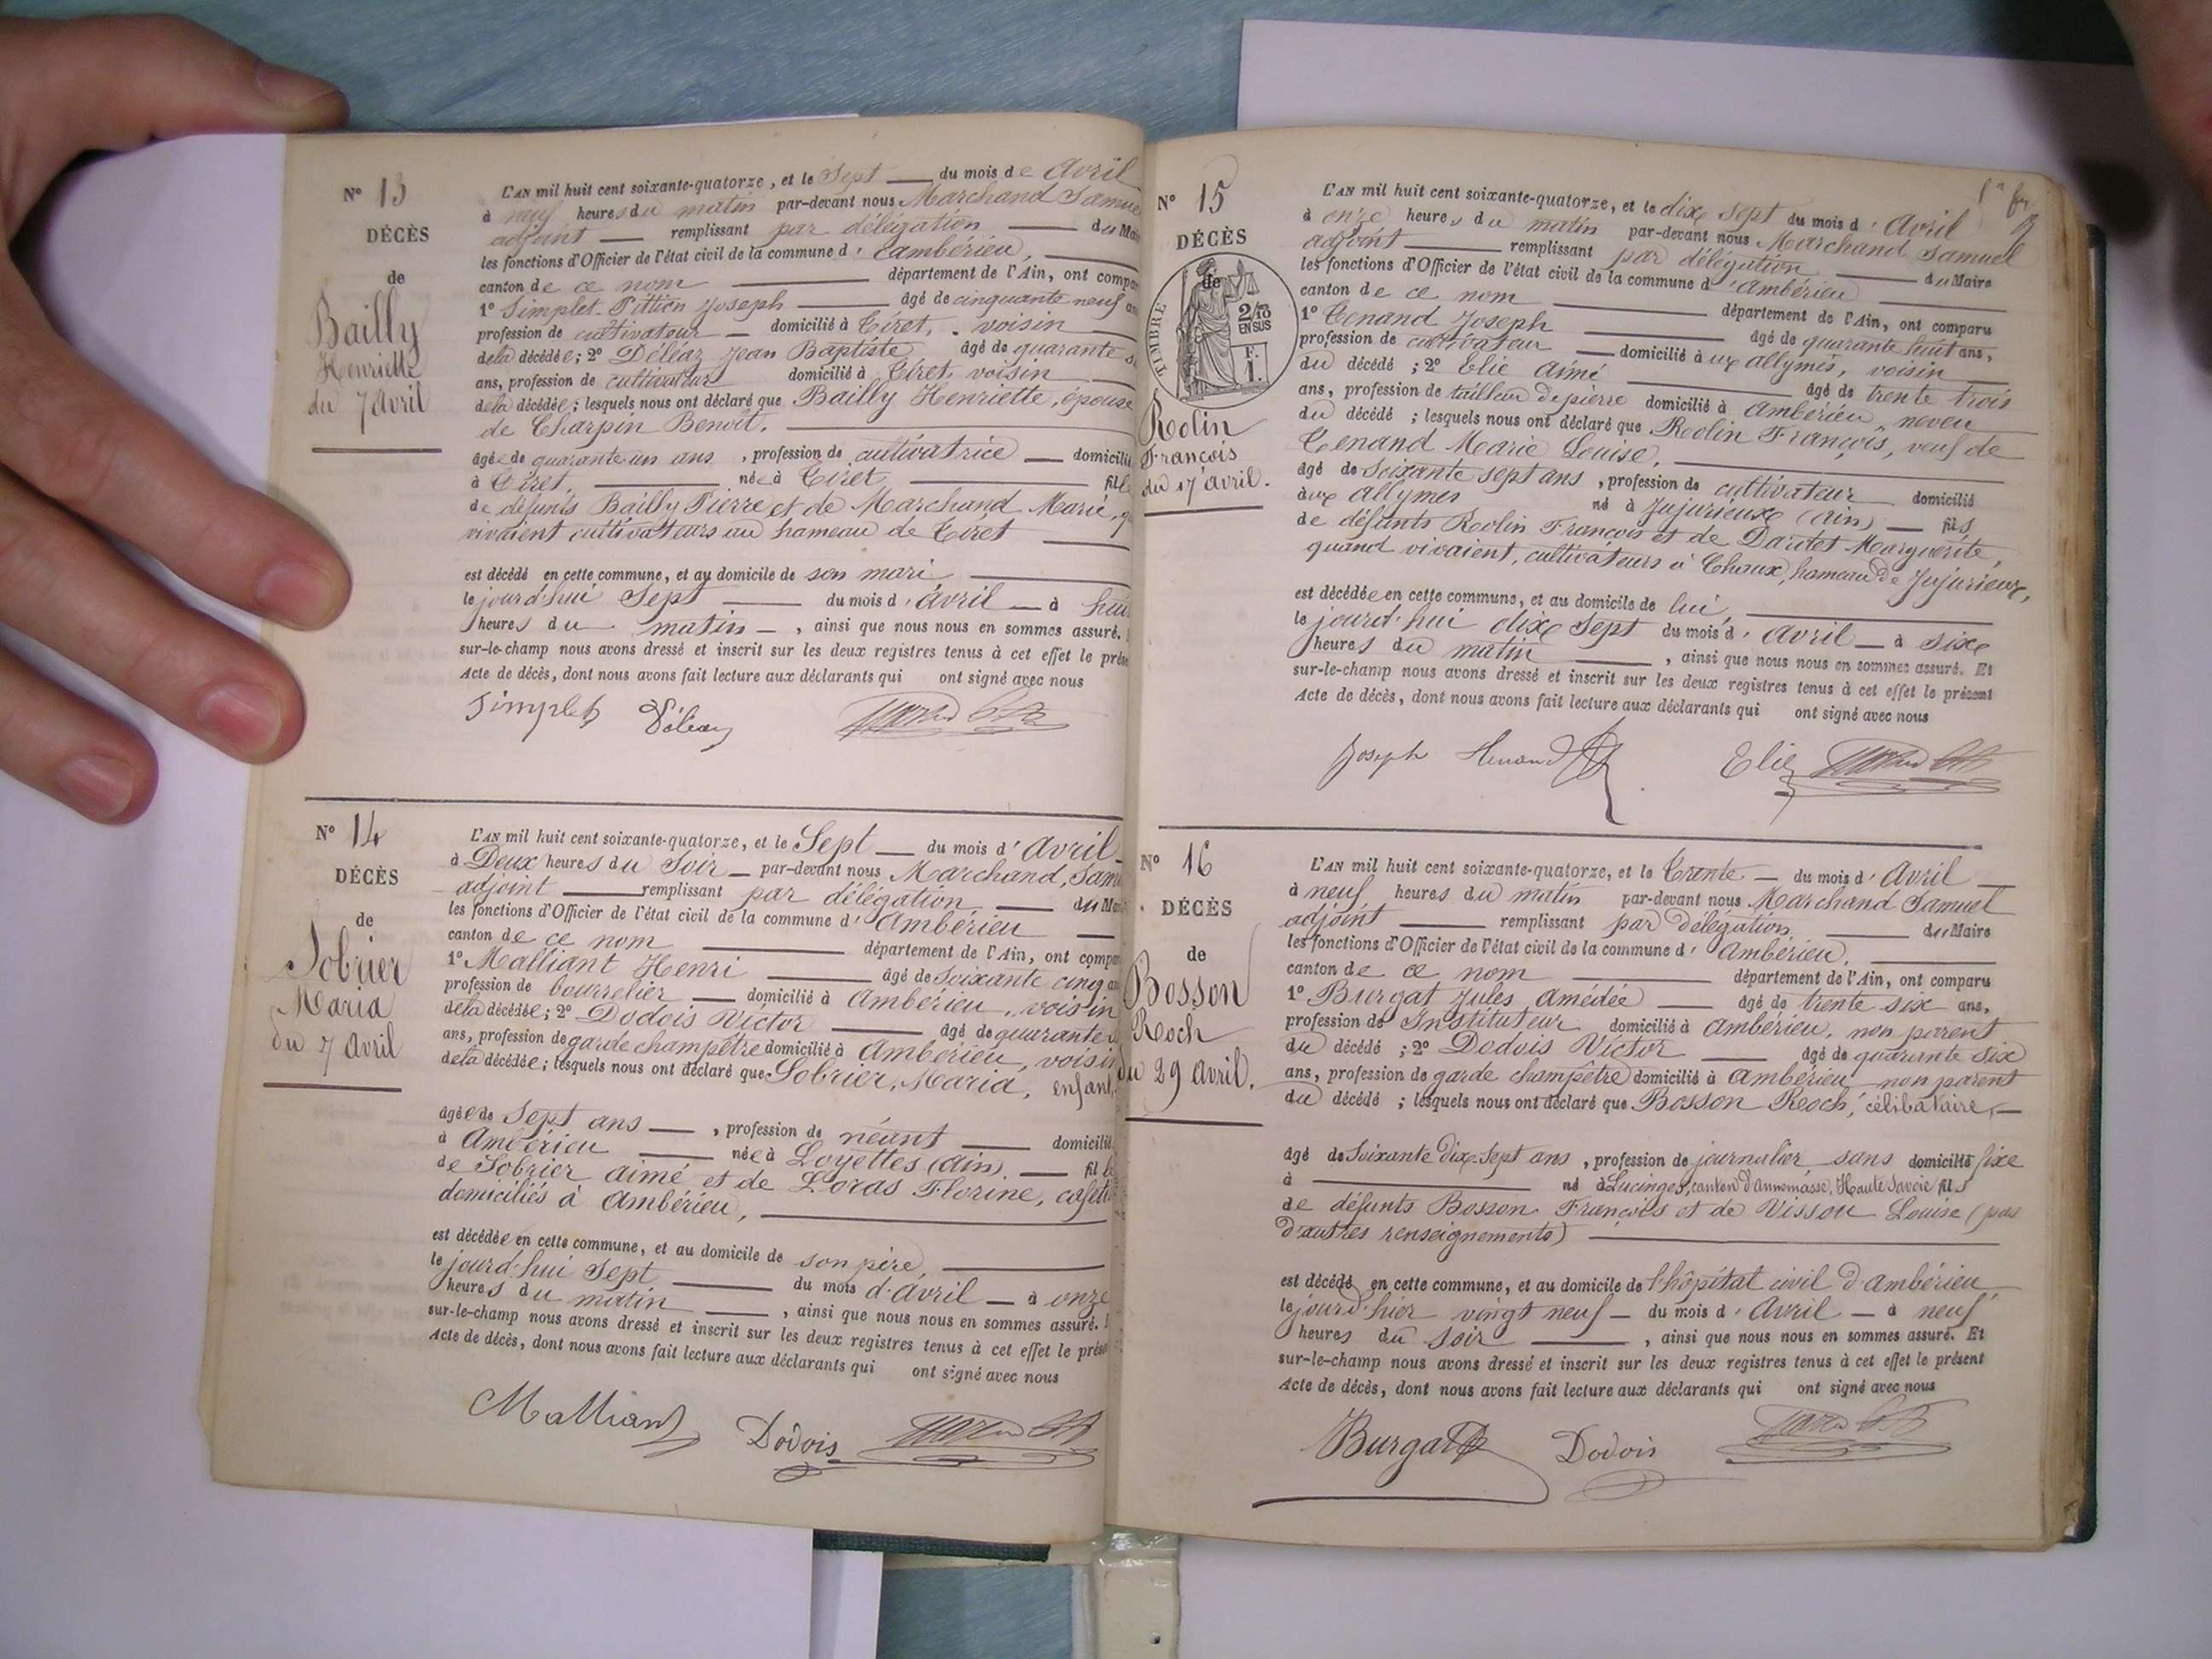 N° 13
DÉCÈS
de
Bailly
Henriette
du 7 Avril
L'AN mil huit cent soixante-quatorze, et le Sept du mois de Avril
à neuf heures du matin par-devant nous Marchand Samuel
adjoint remplissant par délégation du Mai
les fonctions d'Officier de l'état civil de la commune d' Ambérieu,
canton de ce nom département de l'Ain, ont compa
1° Simplet-Pittion Joseph âgé de cinquante neuf an
profession de cultivateur domicilié à Tiret, voisin
de la décédée; 2° Déléaz Jean Baptiste âgé de quarante
ans, profession de cultivateur domicilié à Tiret, voisin
de la décédée; lesquels nous ont déclaré que Bailly Henriette, épouse
de Charpin Benoît,
âgée de quarante un ans, profession de cultivatrice domicilié
à Tiret, née à Tiret, fille
de défunts Bailly Pierre et de Marchand Marie, q
vivaient cultivateurs au hameau de Tiret
est décédé en cette commune, et au domicile de son mari,
le jourd'hui Sept du mois d' Avril à hui
heures du matin, ainsi que nous nous en sommes assuré.
sur-le-champ nous avons dressé et inscrit sur les deux registres tenus à cet effet le prése
Acte de décès, dont nous avons fait lecture aux déclarants qui ont signé avec nous
Simplet Déléaz
N° 14
DÉCÈS
de
Sobrier
Maria
du 7 Avril
L'AN mil huit cent soixante-quatorze, et le Sept du mois d' Avril
à Deux heures du Soir par-devant nous Marchand, Sam
adjoint remplissant par délégation du Mai
les fonctions d'Officier de l'état civil de la commune d' Ambérieu
canton de ce nom département de l'Ain, ont compa
1° Malliant Henri âgé de Soixante cinq an
profession de bourrelier domicilié à Ambérieu, voisin
de la décédée; 2° Dodois Victor âgé de quarante
ans, profession de garde champêtre domicilié à Ambérieu, voisin
de la décédée; lesquels nous ont déclaré que Sobrier, Maria, enfant,
âgée de Sept ans, profession de néant domicilié
à Ambérieu née à Loyettes (Ain), fille
de Sobrier Aimé et de Loras Florine, cafeti
domiciliés à Ambérieu,
est décédée en cette commune, et au domicile de son père,
le jourd'hui Sept du mois d'Avril à onze
heures du matin, ainsi que nous nous en sommes assuré.
sur-le-champ nous avons dressé et inscrit sur les deux registres tenus à cet effet le prése
Acte de décès, dont nous avons fait lecture aux déclarants qui ont signé avec nous
Malliant Dodois
N° 15
DÉCÈS
de
TIMBRE
2/10
EN SUS
F.
1.
Rolin
François
du 17 avril.
L'AN mil huit cent soixante-quatorze, et le dix Sept du mois d' Avril
à onze heures du matin par-devant nous Marchand Samuel
adjoint remplissant par délégation du Maire
les fonctions d'Officier de l'état civil de la commune d' Ambérieu
canton de ce nom département de l'Ain, ont comparu
1° Tenand Joseph âgé de quarante huit ans,
profession de cultivateur domicilié à ux Allymes, voisin
du décédé; 2° Elie Aimé âgé de trente trois
ans, profession de tailleur de pierre domicilié à Ambérieu, neveu
du décédé; lesquels nous ont déclaré que Rolin François, veuf de
Tenand Marie Louise,
âgé de Soixante sept ans, profession de cultivateur domicilié
aux Allymes né à Jujurieux (Ain) fils
de défunts Rolin François et de Dardet Marguerite,
quand vivaient, cultivateurs à Chaux, hameau de Jujurieux,
est décédée en cette commune, et au domicile de lui,
le jourd'hui dix Sept du mois d' Avril à six
heures du matin, ainsi que nous nous en sommes assuré. Et
sur-le-champ nous avons dressé et inscrit sur les deux registres tenus à cet effet le présent
Acte de décès, dont nous avons fait lecture aux déclarants qui ont signé avec nous
Joseph Elie
N° 16
DÉCÈS
de
Bosson
Roch
du 29 Avril.
L'AN mil huit cent soixante-quatorze, et le Trente du mois d' Avril
à neuf heures du matin par-devant nous Marchand Samuel
adjoint remplissant par délégation du Maire
les fonctions d'Officier de l'état civil de la commune d' Ambérieu,
canton de ce nom département de l'Ain, ont comparu
1° Burgat Jules, Amédée âgé de trente six ans,
profession de Instituteur domicilié à Ambérieu, non parent
du décédé; 2° Dodois Victor âgé de quarante six
ans, profession de garde champêtre domicilié à Ambérieu non parent
du décédé; lesquels nous ont déclaré que Bosson Roch, célibataire,
âgé de Soixante dix Sept ans, profession de journalier, sans domicilié fixe
à né à Lucinges, canton d'Annemasse, Haute Savoie fils
de défunts Bosson François et de Vissou Louise (pas
d'autres renseignements)
est décédé en cette commune, et au domicile de l'hôpital civil d'Ambérieu
le jourd'hier vingt neuf du mois d' Avril à neuf
heures du Soir, ainsi que nous nous en sommes assuré. Et
sur-le-champ nous avons dressé et inscrit sur les deux registres tenus à cet effet le présent
Acte de décès, dont nous avons fait lecture aux déclarants qui ont signé avec nous
Burgat Dodois